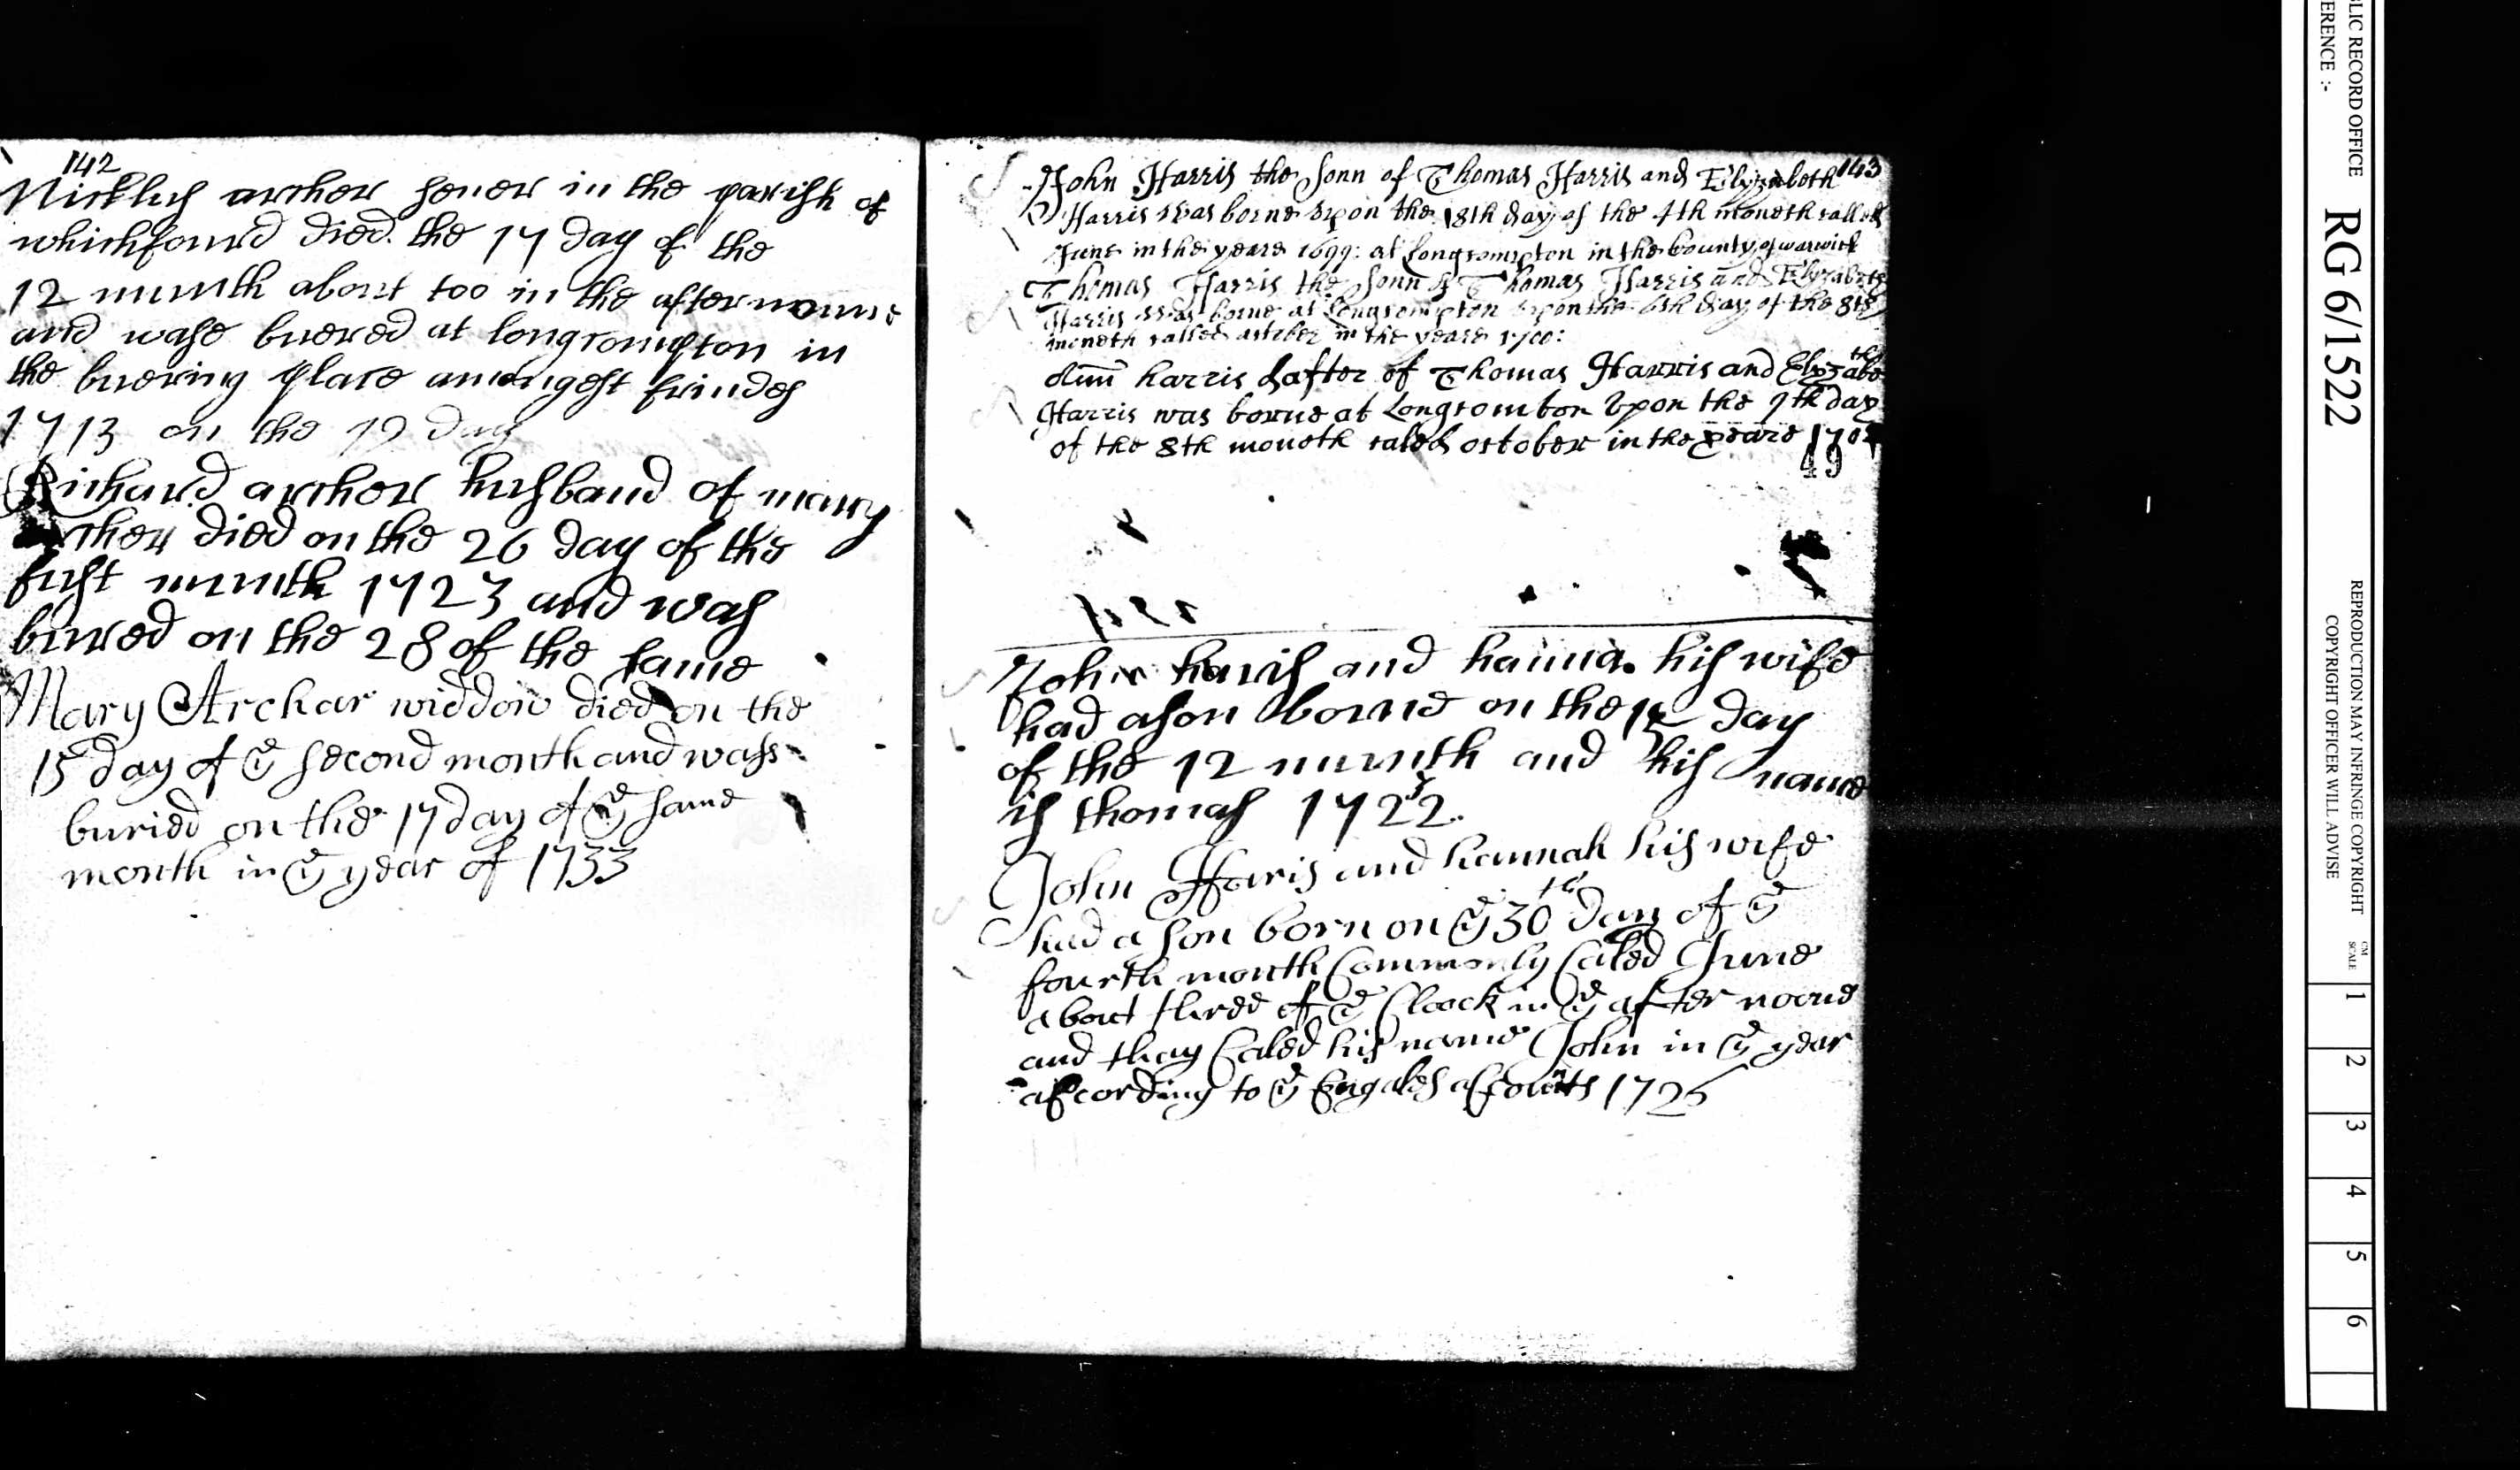 142
Nicklus archer sener in the parish of
whichfourd died the 17 day of the
12 munth about too in the afternoune
and wase buered at longcompton in
the buering place amongest frindes
1713 on the 19 day
Richard archer husband of mary
archer died on the 26 day of the
furst munth 1723 and was
buired on the 28 of the same
Mary Archar widdow died on the
15 day of ye second month and wass
buried on the 17 day of ye same
month in ye year of 1733
143
John Harris the sonn of Thomas Harris and Elyzabeth
Harris was borne upon the 18th day of the 4th moneth called
June in the yeare 1699: at Longcompton in the County of warwick
Thomas Harris the Sonn of Thomas Harris and Elyzabeth
Harris was borne at Longcompton upon the 6th day of the 8th
moneth called octtber in the yeare 1700:
Ann harris dafter of Thomas Harris and Elyzabeth
Harris was borne at Longcomton Upon the 9th day
of the 8th moneth caled october in the yeare 1702
49
John haris and hanna his wife
had a son borne on the 15 day
of the 12 munth and his name
is thomas 1722/3
John Haris and hannah his wife
had a son born on ye 30th day of ye
fourth month Commonly Caled June
about three of ye Cloock in ye after noone
and thay Caled his name John in ye year
according to ye Engales accounts 1725
PUBLIC RECORD OFFICE
REFERENCE :-
RG 6/1522
REPRODUCTION MAY INFRINGE COPYRIGHT
COPYRIGHT OFFICER WILL ADVISE
CM
SCALE
1
2
3
4
5
6